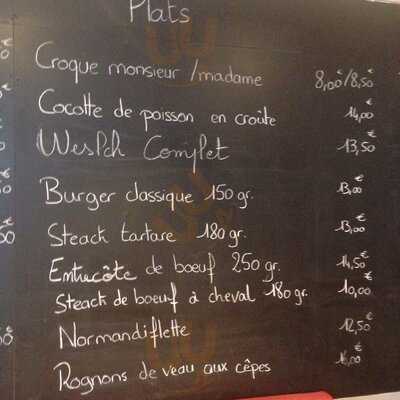 Plats
Croque monsieur / madame 8,00€/8,50€
Cocotte de poisson en croûte 14,00€
Weslch Complet 13,50€
Burger classique 150 gr. 13,00€
Steack tartare 180 gr. 13,00€
Entrecôte de boeuf 250 gr. 14,50€
Steack de boeuf à cheval 180 gr. 10,00€
Normandiflette 12,50€
Rognons de veau aux cêpes